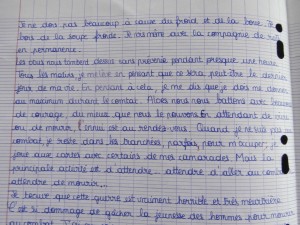 Je ne dors pas beaucoup à cause du froid et de la boue. Je
bois de la soupe froide. Je vis même avec la compagnie de rats
en permanence.
Les obus nous tombent dessus sans prévenir pendant presque une heure.
Tous les matins je me lève en pensant que ce sera peut-être le dernier
jour de ma vie. En pensant à cela, je me dis que je dois me donner
au maximum durant le combat. Alors nous nous battons avec beaucoup
de courage, du mieux que nous le pouvons. En attendant de vivre
ou de mourir, l'ennui est au rendez-vous. Quand je ne suis pas au
combat, je reste dans les tranchées, parfois, pour m'occuper, je
joue aux cartes avec certains de mes camarades. Mais la
principale activité est d'attendre.. attendre d'aller au combat
attendre de mourir...
Je trouve que cette guerre est vraiment horrible et très meurtrière.
C'est si dommage de gâcher la jeunesse des hommes pour mourir
au combat.